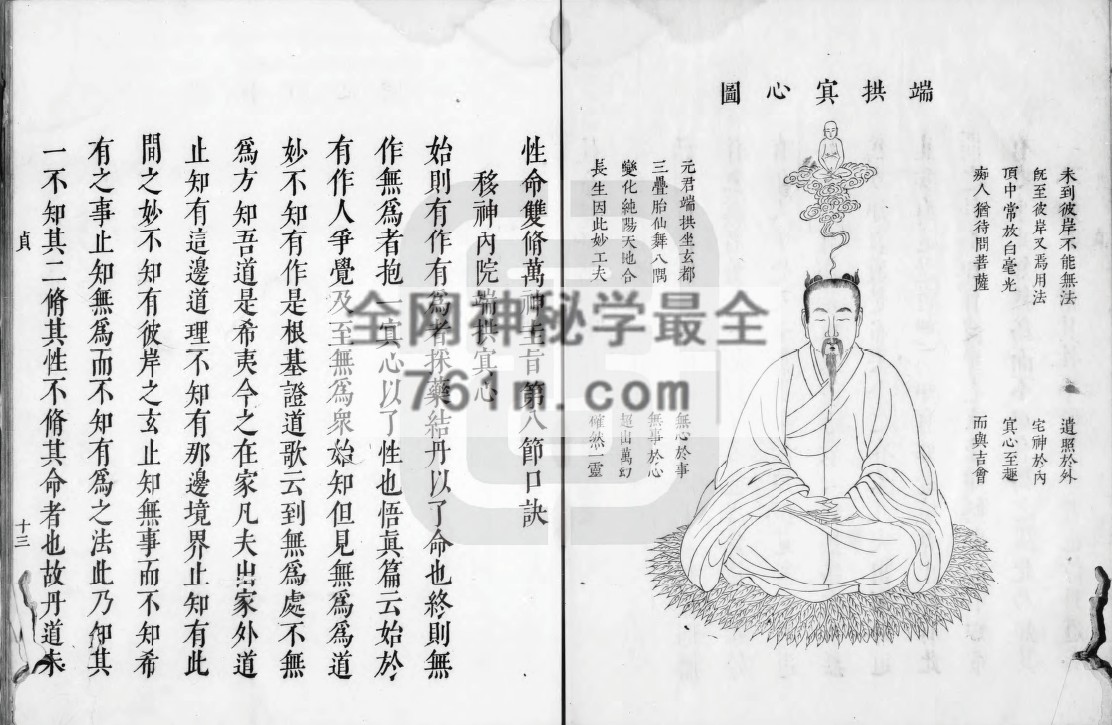 端拱冥心圖
未到彼岸不能無法
旣至彼岸又焉用法
頂中常放白毫光
癡人猶待問菩薩
元君端拱坐玄都
三疊胎仙舞八隅
變化純陽天地合
長生因此妙工夫
遺照於外
宅神於內
冥心至趣
而與吉會
無心於事
無事於心
超出萬幻
確然一靈
性命雙脩萬神圭旨第八節口訣
移神內院端拱冥心
始則有作有爲者採藥結丹以了命也終則無
作無爲者抱一冥心以了性也悟眞篇云始於
有作人爭覺及至無爲衆始知但見無爲爲道
妙不知有作是根基證道歌云到無爲處不無
爲方知吾道是希夷今之在家凡夫出家外道
止知有這邊道理不知有那邊境界止知有此
間之妙不知有彼岸之玄止知無事而不知希
有之事止知無爲而不知有爲之法此乃知其
一不知其二脩其性不脩其命者也故丹道未
貞
十三
全网神秘学最全
761m.com